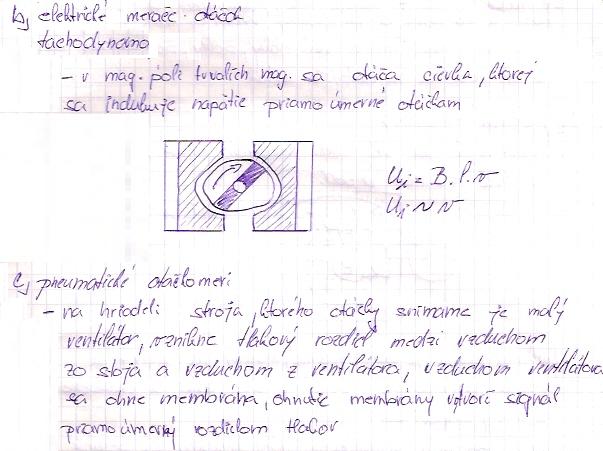 b, elektrické merače otáčok
tachodynamo
- v mag. poli trvalých mag. sa otáča cievka, ktorej
sa indukuje napätie priamo úmerné otáčkam
Ui = B.l.v
Ui ~ v
c, pneumatické otáčkomeri
- na hriadeli stroja, ktorého otáčky snímame je malý
ventilátor, vznikne tlakový rozdiel medzi vzduchom
zo stoja a vzduchom z ventilátora, vzduchom ventilátora
sa ohne membrána, ohnutie membrány vytvorí signál
priamoúmerný rozdielom tlakov